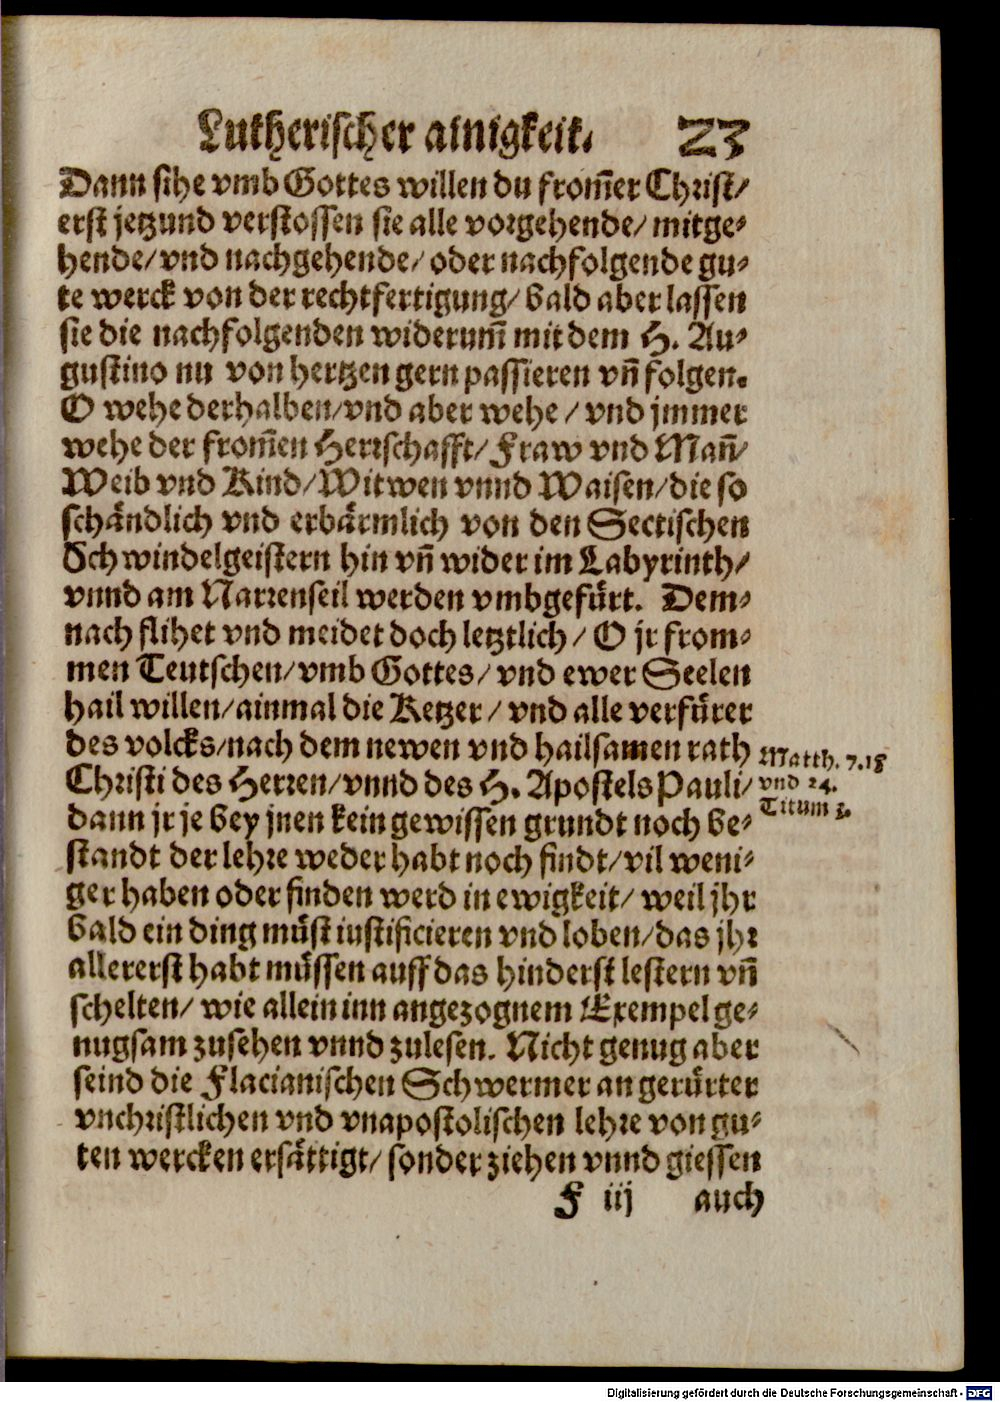 Lutherischer ainigkeit. 23
Dann sihe vmb Gottes willen du from̃er Christ/
erst jetzund verstossen sie alle vorgehende/ mitge-
hende/ vnd nachgehende/ oder nachfolgende gu-
te werck von der rechtfertigung/ bald aber lassen
sie die nachfolgenden widerum̃ mit dem H. Au-
gustino nu von hertzen gern passieren vñ folgen.
O wehe derhalben/ vnd aber wehe / vnd jmmer
wehe der from̃en Herrschafft/ Fraw vnd Mañ/
Weib vnd Kind/ Witwen vnnd Waisen/ die so
schändlich vnd erbärmlich von den Sectischen
Schwindelgeistern hin vñ wider im Labyrinth/
vnnd am Narrenseil werden vmbgefürt. Dem-
nach flihet vnd meidet doch letztlich/ O jr from-
men Teutschen/ vmb Gottes/ vnd ewer Seelen
hail willen/ ainmal die Ketzer/ vnd alle verfürer
des volcks/ nach dem newen vnd hailsamen rath
Christi des Herren/ vnnd des H. Apostels Pauli/
dann jr je bey jnen kein gewissen grundt noch be-
standt der lehre weder habt noch findt/ vil weni-
ger haben oder finden werd in ewigkeit/ weil jhr
bald ein ding müst iustificieren vnd loben/ das jhr
allererst habt müssen auff das hinderst lestern vñ
schelten/ wie allein inn angezognem Exempel ge-
nugsam zusehen vnnd zulesen. Nicht genug aber
seind die Flacianischen Schwermer an gerürter
vnchristlichen vnd vnapostolischen lehre von gu-
ten wercken ersättigt/ sonder ziehen vnnd giessen
F iij auch
Matth. 7.18
vnd 24.
Titum 3.
Digitalisierung gefördert durch die Deutsche Forschungsgemeinschaft - DFG